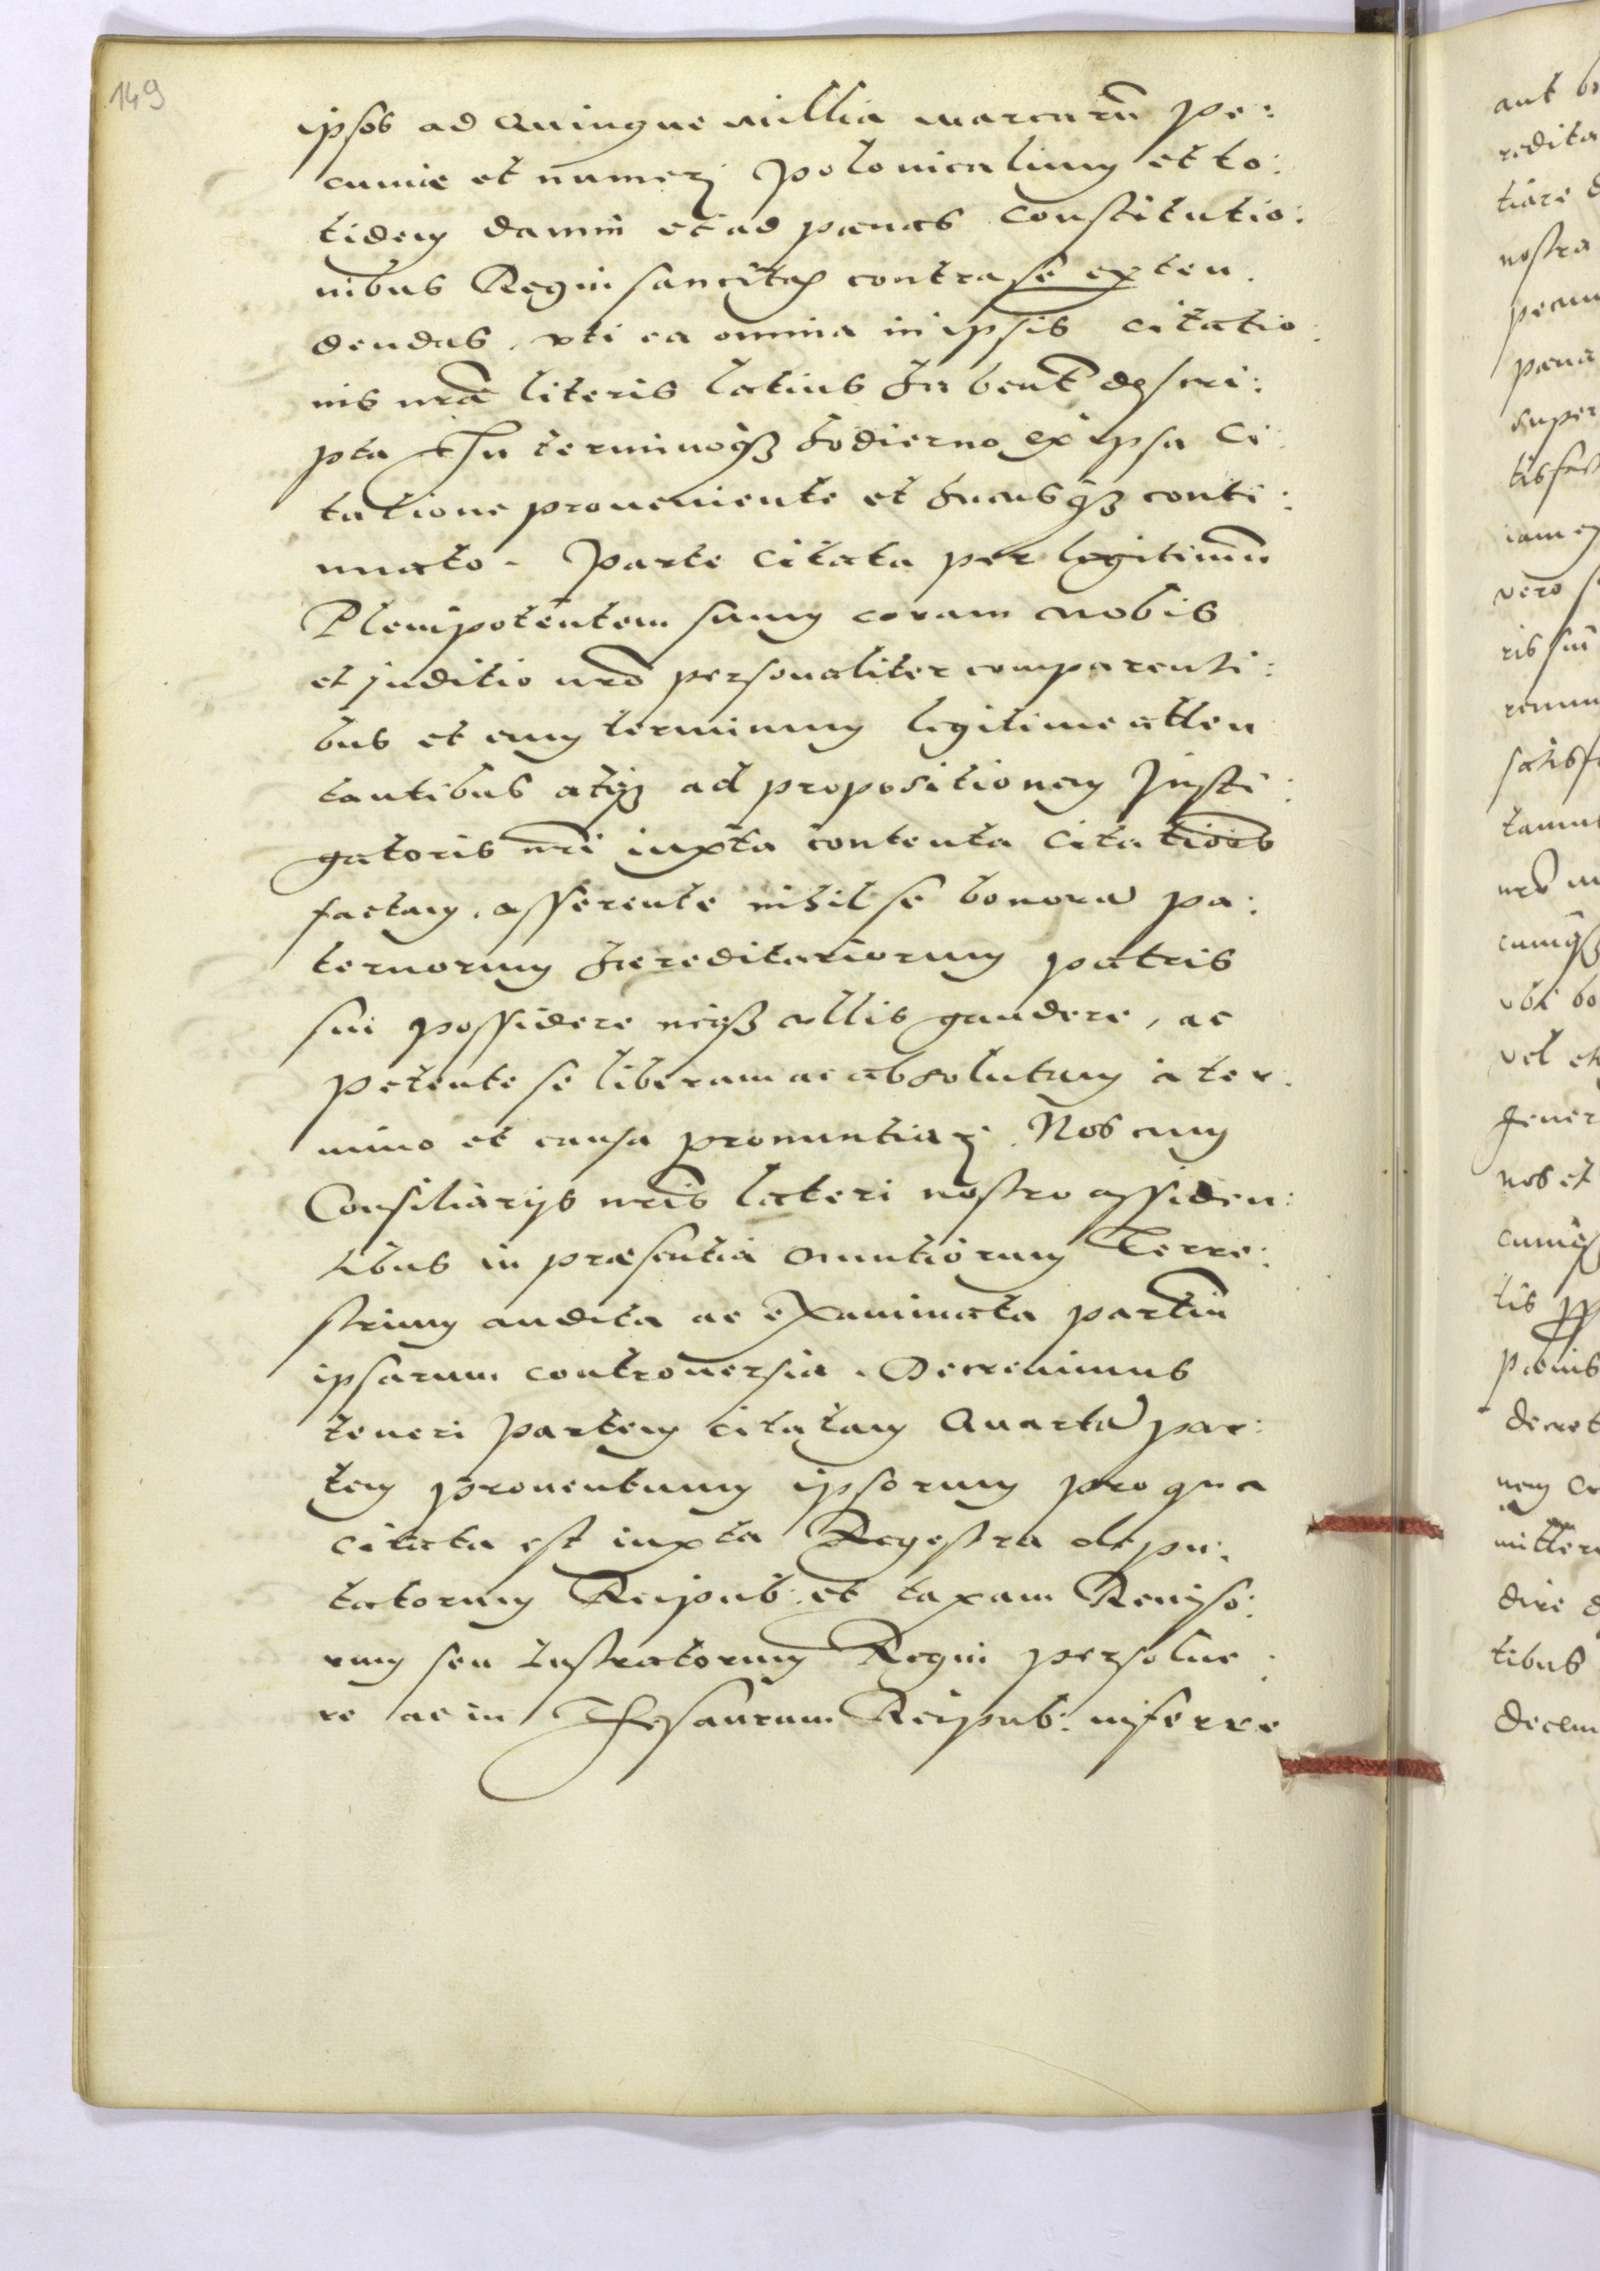 149
ipsos ad Quinque millia marcarũ pe:
cuniæ et numeri Polonicalium et to:
tidem damni et ad pœnas Constitutio:
nibus Regni sancitas contra se exten.
dendas, vti ea omnia in ipsis citatio:
nis nrã literis latius habent descri:
pta In terminoqȝ hodierno ex ipsa Ci:
tatione proueniente et hucusqȝ conti:
nuato. Parte Citata per legitimũ
Plenipotentem suum coram nobis
et juditio nrõ personaliter comparenti:
bus et eum terminum legitime atten
tantibus atqȝ ad propositionem Insti:
gatoris nrĩ iuxta contenta Citationis
factam, asserente nihil se bonorũ pa:
ternorum hereditariorum patris
sui possidere neqȝ ullis gaudere, ac
petente se liberam ac absolutam à ter.
mino et causa pronuntiari. Nos cum
Consiliarijs nrĩs lateri nostro assiden:
tibus in præsentia Nuntiorum Terre:
strium audita ac examinata partiũ
ipsarum controuersia. Decreuimus
teneri partem citatam Quartã par:
tem prouentuum ipsorum pro qua
citata est iuxta Regestra depu:
tatorum Reipub: et taxam Reuiso:
rum seu Lustratorum Regni persolue:
re ac in Thesaurum Reipub: inferre
aut bo
redita
tiare d
nostra
pecun
pœna
super
tisfac
iam ex
vero s
ris sui
renun
satisf
tamut
nrõ
cumqȝ
vbi bo
vel et
gener
nos et
cumqȝ
tis
pœnis
decret
nem
mittere
dire d
tibus
decem